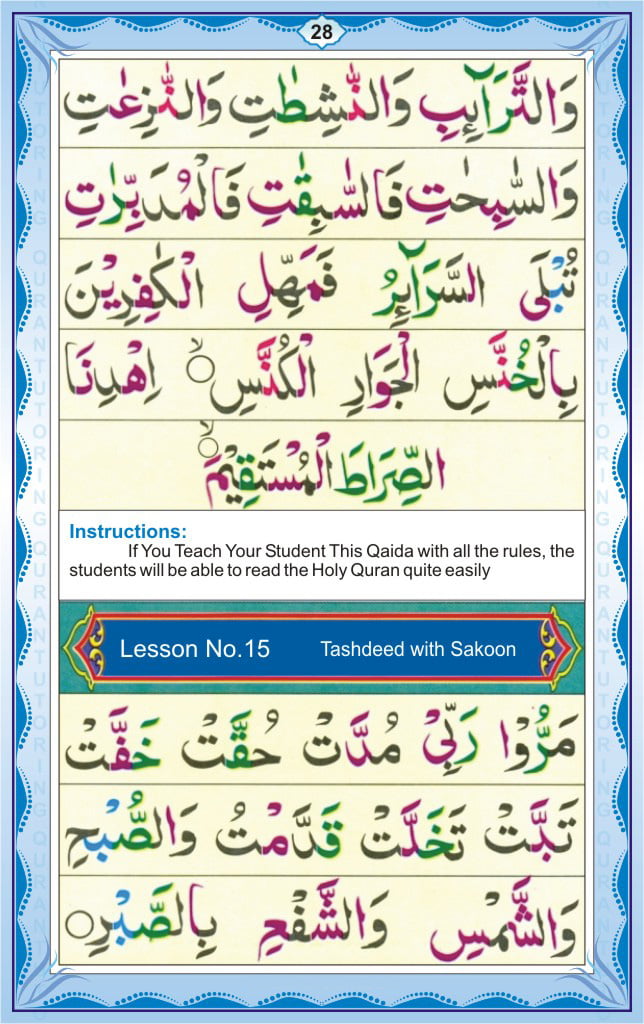 28
وَالتَّرَآئِبِ وَالنّٰشِطٰتِ وَالنّٰزِعٰتِ
وَالسّٰبِحٰتِ فَالسّٰبِقٰتِ فَالْمُدَبِّرٰتِ
تُبْلَى السَّرَآئِرُ فَمَهِّلِ الْكٰفِرِيْنَ
بِالْخُنَّسِ الْجَوَارِ الْكُنَّسِ اِهْدِنَا
الصِّرَاطَ الْمُسْتَقِيْمَ
Instructions:
If You Teach Your Student This Qaida with all the rules, the
students will be able to read the Holy Quran quite easily
Lesson No.15 Tashdeed with Sakoon
مَرُّوْا رَبِّيْ مُدَّتْ حُقَّتْ خَفَّتْ
تَبَّتْ تَخَلَّتْ قَدَّمْتُ وَالصُّبْحِ
وَالشَّمْسِ وَالشَّفْعِ بِالصَّبْرِ
QURANTUTORING